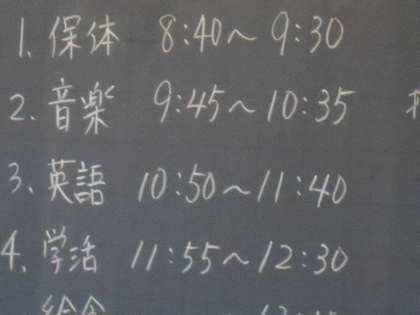 1. 保体 8:40～9:30
2. 音楽 9:45～10:35
3. 英語 10:50～11:40
4. 学活 11:55～12:30